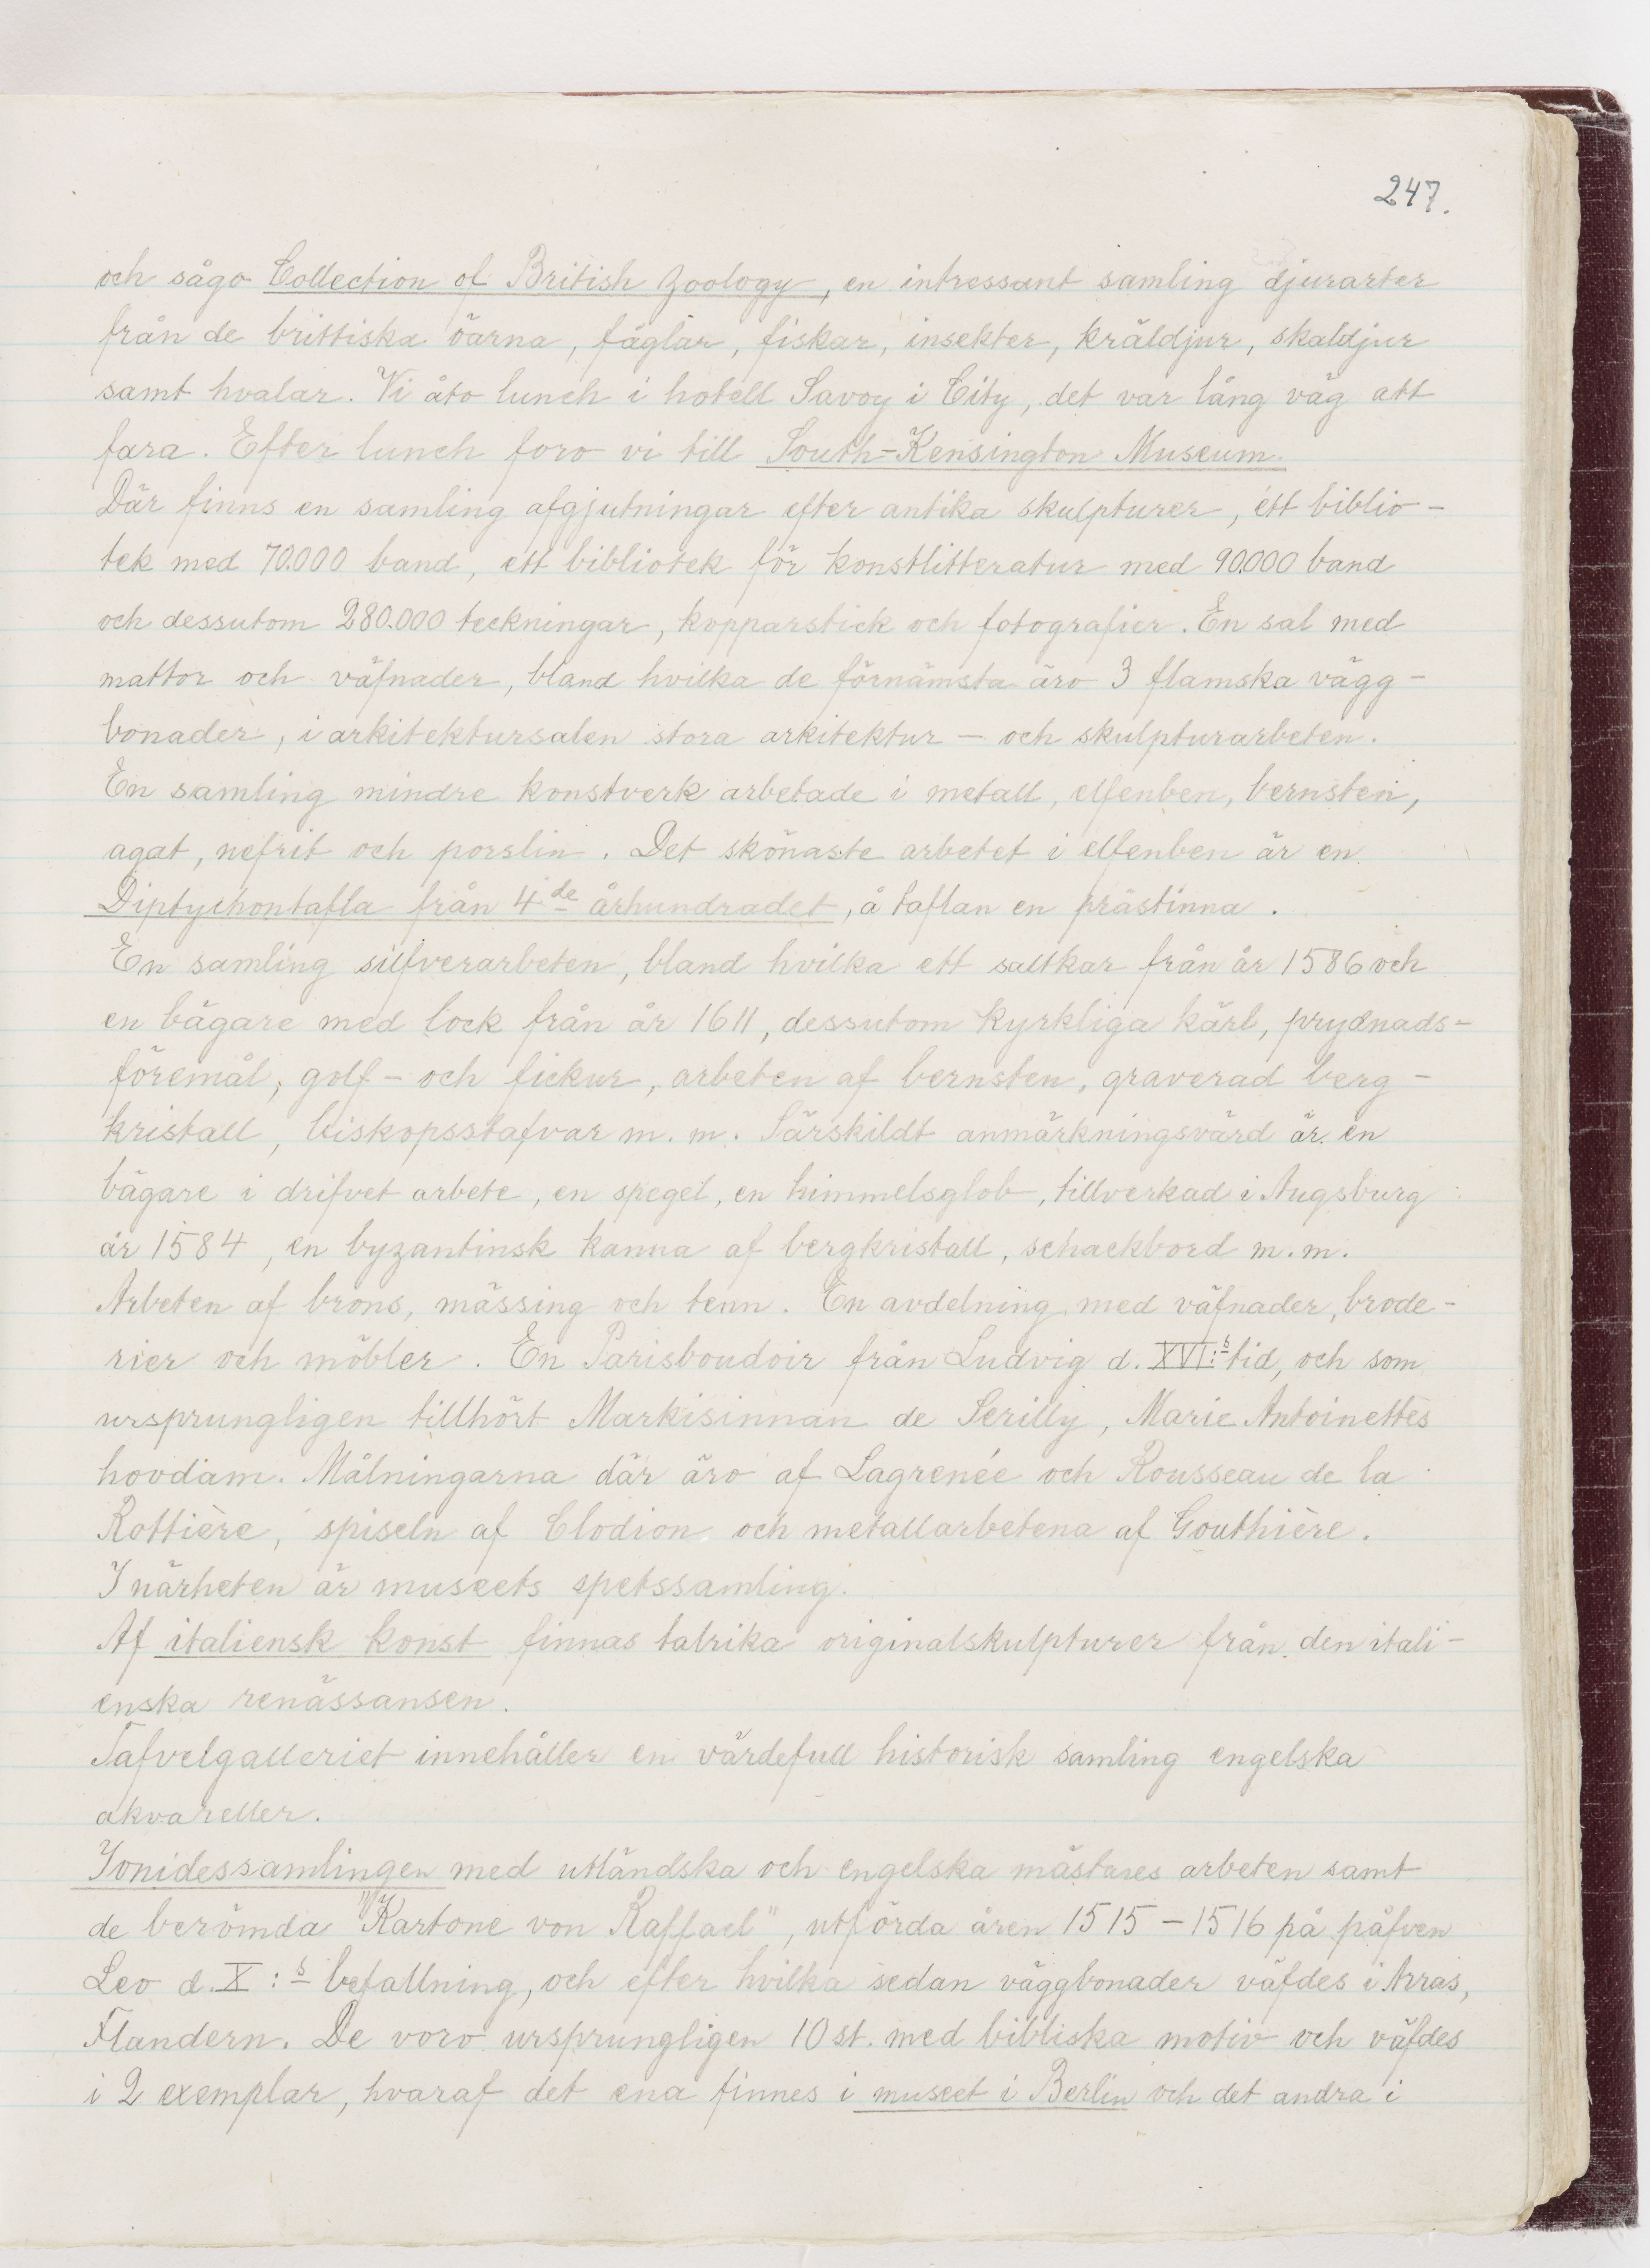 247.
och sågo Collection of British Zoology, en intressant samling djurarter
från de brittiska öarna, fåglar, fiskar, insekter, kräldjur, skaldjur
samt hvalar. Vi åto lunch i hotell Savoy i City, det var lång väg att
fara. Efter lunch foro vi till South-Kensington Museum.
Där finns en samling afgjutningar efter antika skulpturer, ett biblio-
tek med 70.000 band, ett bibliotek för konstlitteratur med 90.000 band
och dessutom 280.000 teckningar, kopparstick och fotografier. En sal med
mattor och väfnader, bland hvilka de förnämsta äro 3 flamska vägg-
bonader, i arkitektursalen stora arkitektur- och skulpturarbeten.
En samling mindre konstverk arbetade i metall, elfenben, bernsten,
agat, nefrit och porslin. Det skönaste arbetet i elfenben är en
Diptychontafla från 4de århundradet, å taflan en prästinna.
En samling silfverarbeten, bland hvilka ett saltkar från år 1586 och
en bägare med lock från år 1611, dessutom kyrkliga kärl, prydnads-
föremål, golf- och fickur, arbeten af bernsten, graverad berg-
kristall, biskopsstafvar m. m. Särskildt anmärkningsvärd är en
bägare i drifvet arbete, en spegel, en himmelsglob, tillverkad i Augsburg
år 1584, en byzantinsk kanna af bergkristall, schackbord m. m.
Arbeten af brons, mässing och tenn. En avdelning med väfnader, brode-
rier och möbler. En Parisboudoir från Ludvig d. XVI:s tid, och som
ursprungligen tillhört Markisinnan de Serilly, Marie Antoinettes
hovdam. Målningarna där äro af Lagrenée och Rousseau de la
Rottière, spiseln af Clodion och metallarbetena af Gouthière.
I närheten är museets spetssamling.
Af italiensk konst finnas talrika originalskulpturer från den itali-
enska renässansen.
Tafvelgalleriet innehåller en värdefull historisk samling engelska
akvareller.
Ionidessamlingen med utländska och engelska mästares arbeten samt
de berömda "Kartone von Raffael", utförda åren 1515-1516 på påfven
Leo d. X:s befallning, och efter hvilka sedan väggbonader väfdes i Arras,
Flandern. De voro ursprungligen 10 st. med bibliska motiv och väfdes
i 2 exemplar, hvaraf det ena finnes i museet i Berlin och det andra i